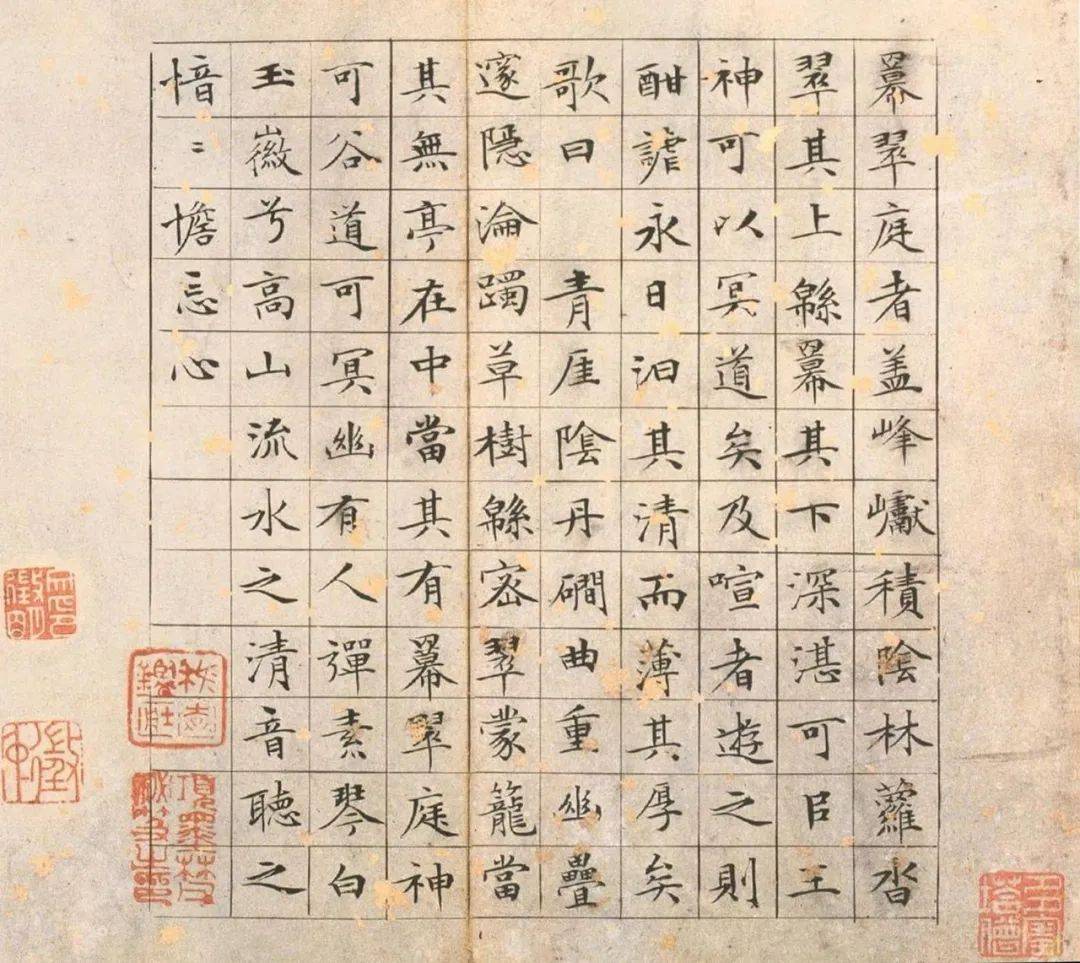 羃翠庭者盖峰巘積陰林蘿沓
翠其上緜羃其下深湛可㠯王
神可以冥道矣及喧者遊之則
酣謔永日汩其清而薄其厚矣
歌曰　青厓陰丹磵曲重幽疊
邃隱淪躅草樹緜密翠蒙籠當
其無亭在中當其有羃翠庭神
可谷道可冥幽有人彈素琴白
玉徽兮高山流水之清音聽之
愔〻憺忘心
項墨林父祕笈之印